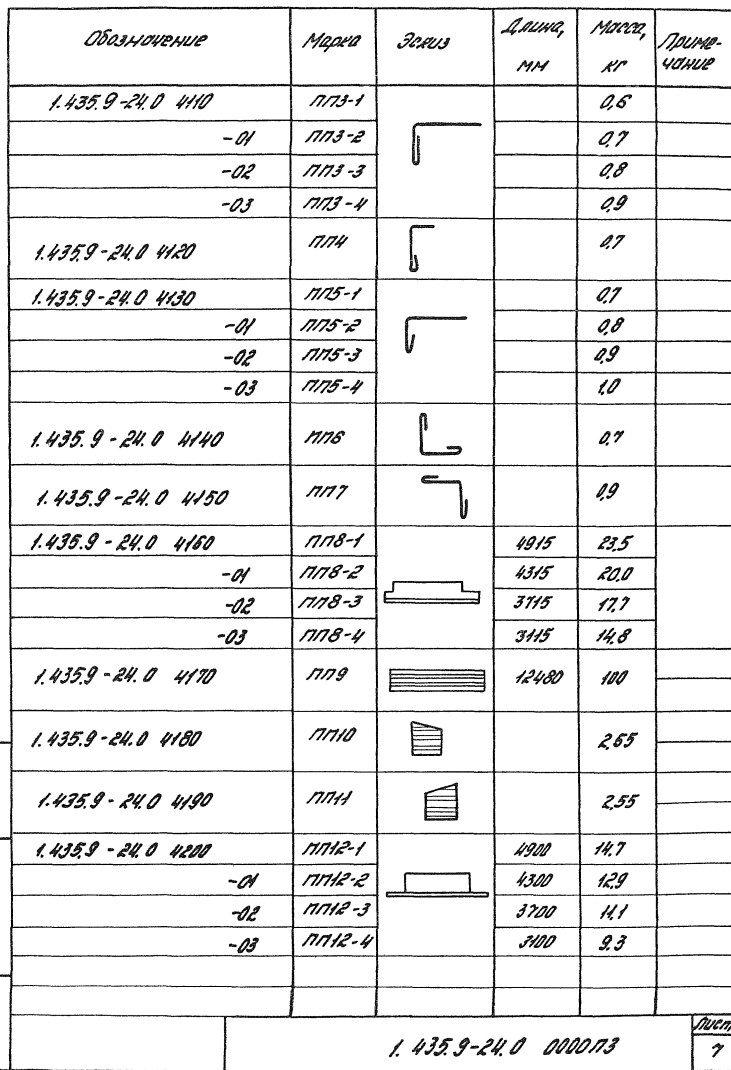 Обозначение Марка Эскиз Длина, мм Масса, кг Приме-чание
1.435.9-24.0 4110 ПП3-1 0,6
-01 ПП3-2 0,7
-02 ПП3-3 0,8
-03 ПП3-4 0,9
1.435.9-24.0 4120 ПП4 0,7
1.435.9-24.0 4130 ПП5-1 0,7
-01 ПП5-2 0,8
-02 ПП5-3 0,9
-03 ПП5-4 1,0
1.435.9-24.0 4140 ПП6 0,7
1.435.9-24.0 4150 ПП7 0,9
1.435.9-24.0 4160 ПП8-1 4915 23,5
-01 ПП8-2 4315 20,0
-02 ПП8-3 3715 17,7
-03 ПП8-4 3115 14,8
1.435.9-24.0 4170 ПП9 12480 100
1.435.9-24.0 4180 ПП10 2,65
1.435.9-24.0 4190 ПП11 2,55
1.435.9-24.0 4200 ПП12-1 4900 14,7
-01 ПП12-2 4300 12,9
-02 ПП12-3 3700 11,1
-03 ПП12-4 3100 9.3
1. 435.9-24.0 0000ПЗ
Лист
7